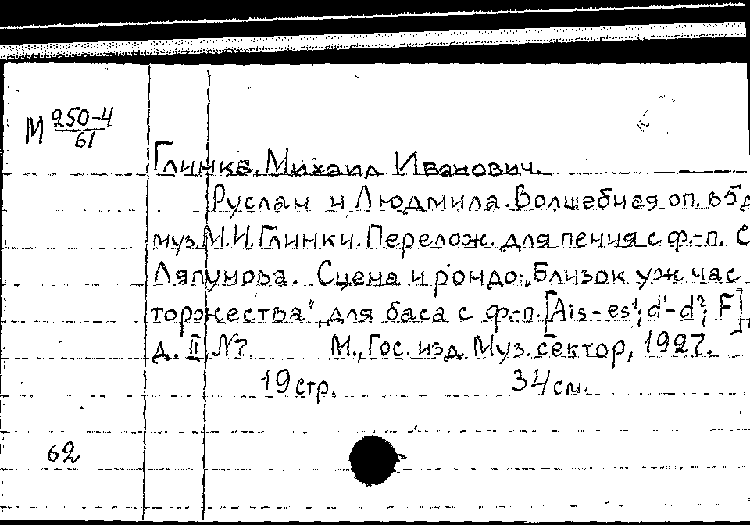 М 250-4
61
Глинка, Михаил Иванович.
Руслан и Людмила. Волшебная оп. в 5 д
муз. М.И. Глинки. Перелож. для пения с ф.-п. С
Ляпунова. Сцена и рондо: „Близок уж час
торжества", для баса с ф.-п. [Ais-es¹; d¹-d²; F],
д. II № 7. М., Гос. изд. Муз. сектор, 1927.
19 стр. 34 см.
62